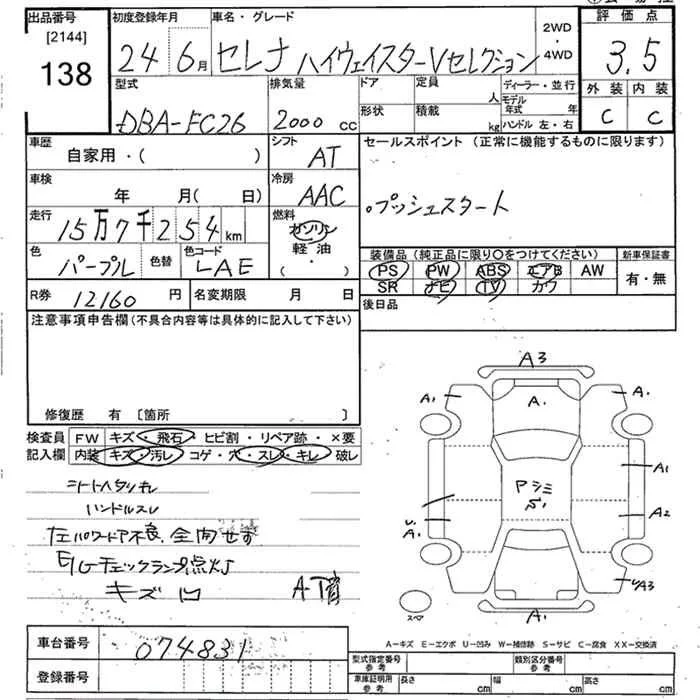 出品番号 初度登録年月 車名・グレード 2WD・4WD 評価点
[2144]
138 24 6月 セレナ ハイウェイスターVセレクション 3.5
型式 排気量 ドア 定員 人 ディーラー・並行 外装 内装
モデル年式 年
形状 積載 kg ハンドル 左・右
DBA-FC26 2000 cc C C
車歴 シフト セールスポイント (正常に機能するものに限ります)
自家用・( ) AT
車検 冷房
年 月( 日) AAC 。プッシュスタート
走行 燃料
15万7千254km ガソリン
軽油
・( )
色 色替 色コード 装備品 (純正品に限り○をつけてください) 新車保証書
パープル LAE PS PW ABS エアB AW 有・無
SR ナビ TV カワ
R券 12160 円 名変期限 月 日 後日品
注意事項申告欄 (不具合内容等は具体的に記入して下さい)
修復歴 有 [箇所 ]
検査員 FW キズ・飛石・ヒビ割・リペア跡・×要
記入欄 内装 キズ・汚レ コゲ・穴・スレ・キレ 破レ
ハンドルスレ
左パワードア不良、全閉せず
E/Gチェックランプ点灯
キズ 凹
A3
A1 A. A.
A1
A2
U.
A1
Pシミ
UA3
A1
スペア
A-キズ E-エクボ U-凹み W-補修跡 S-サビ C-腐食 XX-交換済
車台番号 074831
登録番号
型式指定番号 参考 類別区分番号 参考
車庫証明用 参考 長さ cm 幅 cm 高さ cm